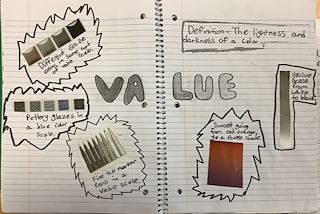 Different Glaze
of Value Scale.
Pottery glazes in
a blue color
Scale.
VALUE
Fine tip marker
Pens in a
Value Scale.
Definition- The lightness and
darkness of a color.
Sunset going
from red orange
to a Purple Shade.
Value
Scale
from
White
to black